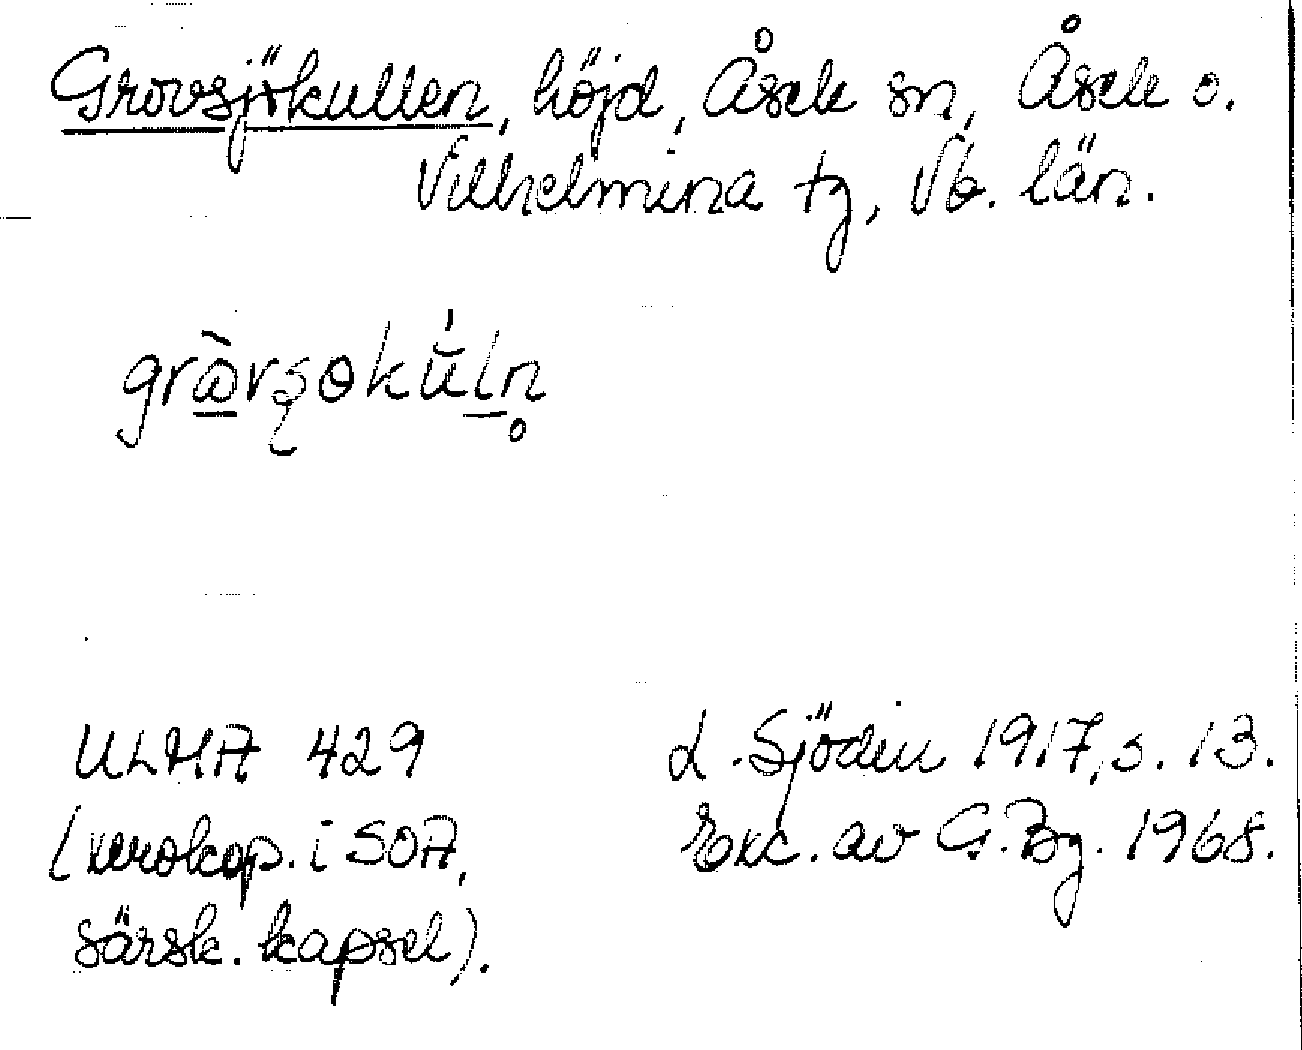 Grovsjökullen, höjd, Åsele sn, Åsele o.
Vilhelmina tg, Vb. län.
ULMA 429
(xerokop. i SOA,
särsk. kapsel).
L. Sjödin 1917, s. 13.
Exc. av G. Bg. 1968.